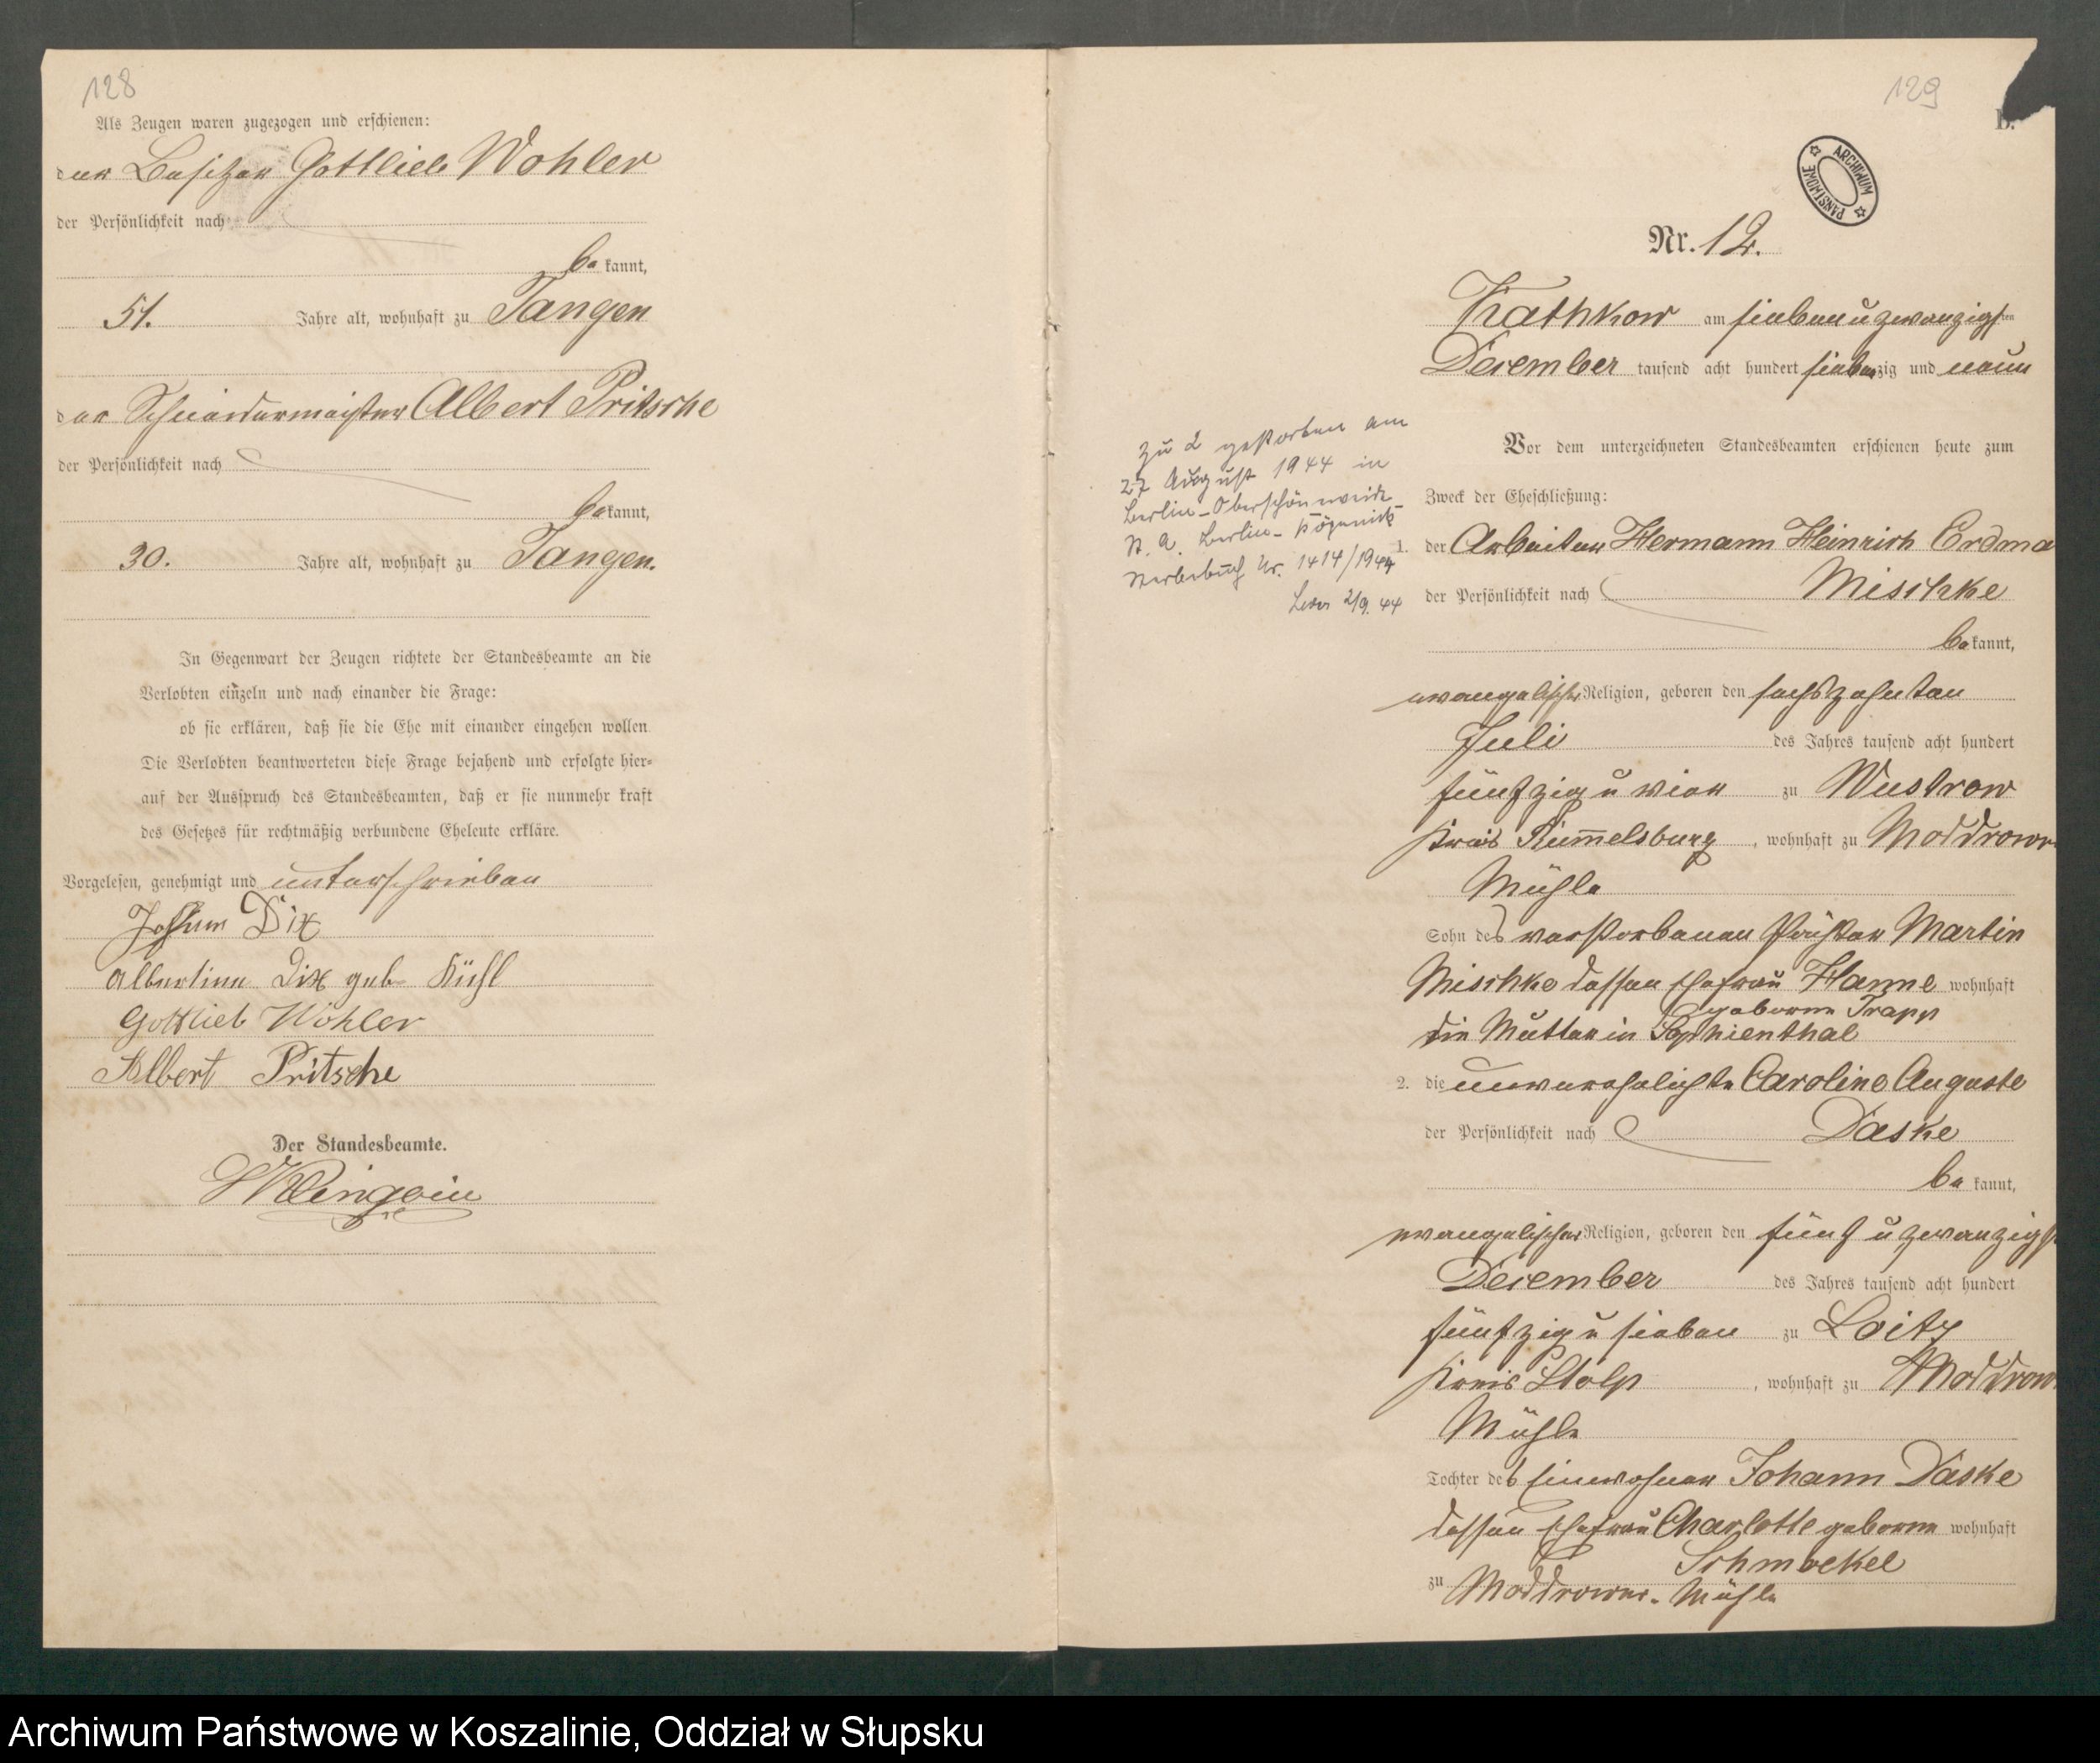 128
Als Zeugen waren zugezogen und erschienen:
der Besitzer Gottlieb Wohler
der Persönlichkeit nach
be kannt,
51. Jahre alt, wohnhaft zu Tangen
der Schneidermeister Albert Pritsche
der Persönlichkeit nach
be kannt,
30. Jahre alt, wohnhaft zu Tangen.
In Gegenwart der Zeugen richtete der Standesbeamte an die
Verlobten einzeln und nach einander die Frage:
ob sie erklären, daß sie die Ehe mit einander eingehen wollen
Die Verlobten beantworteten diese Frage bejahend und erfolgte hier-
auf der Ausspruch des Standesbeamten, daß er sie nunmehr kraft
des Gesetzes für rechtmäßig verbundene Eheleute erkläre.
Vorgelesen, genehmigt und unterschrieben
Dix
Albertine Dix geb Kühl
Gottlieb Wöhler
Albert Pritsche
Der Standesbeamte.
129
B.
ARCHIWUM PAŃSTWOWE
Nr. 12.
Kathkow am sieben u zwanzigsten
December tausend acht hundert siebenzig und neun
Vor dem unterzeichneten Standesbeamten erschienen heute zum
Zweck der Eheschließung:
zu 2 gestorben am
27 August 1944 in
Berlin-Oberschönweide
St. A. Berlin-Köpenick
Sterbebuch Nr. 1414/1944
2/9. 44
1. der Arbeiter Hermann Heinrich Erdma
der Persönlichkeit nach Mischke
be kannt,
evangelischer Religion, geboren den sechszehnten
Juli des Jahres tausend acht hundert
fünfzig u vier zu Wustrow
Kreis Rummelsburg, wohnhaft zu Moddrower
Mühle
Sohn des verstorbenen Förster Martin
Mischke dessen Ehefrau Hanne wohnhaft
geborne Trapp
die Mutter in Sophienthal
2. die unverehelichte Caroline Auguste
der Persönlichkeit nach Daske
be kannt,
evangelischer Religion, geboren den fünf u zwanzigst
December des Jahres tausend acht hundert
fünfzig u sieben zu Loitz
Kreis Stolp, wohnhaft zu Moddrow
Mühle
Tochter des Einwohner Johann Daske
dessen Ehefrau Charlotte geborne wohnhaft
Schmockel
zu Moddrower-Mühle
Archiwum Państwowe w Koszalinie, Oddział w Słupsku